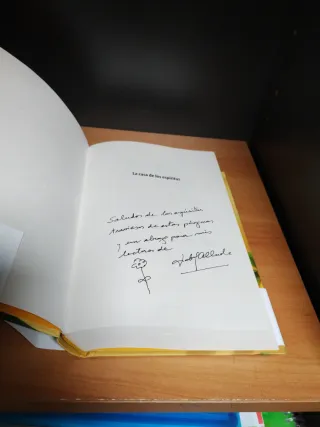 La casa de los espíritus
Saludos de los espíritus
traviesos de estas páginas
y un abrazo para mis
lectores de
Isabel Allende